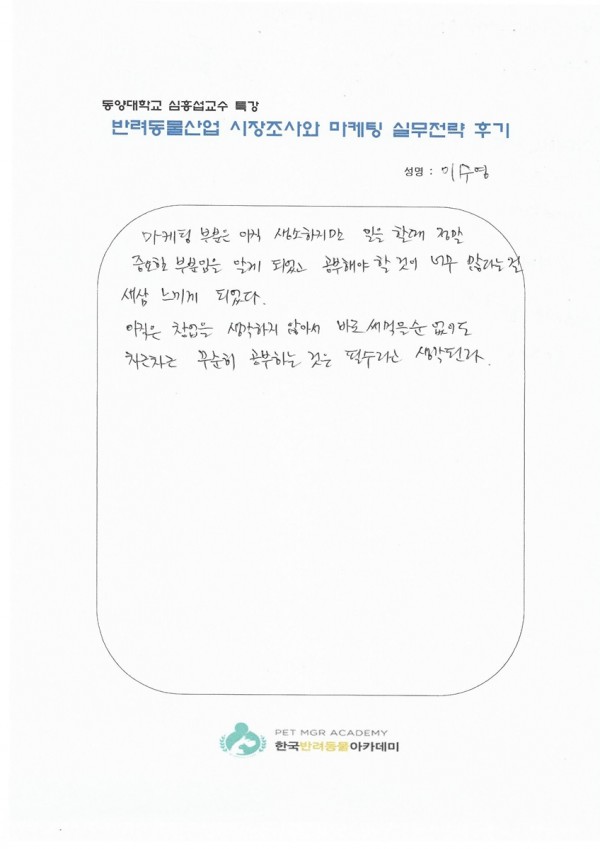 동양대학교 심흥섭교수 특강
반려동물산업 시장조사와 마케팅 실무전략 후기
성명 : 이수영
마케팅 부분은 아직 생소하지만 일을 할때에 정말
중요한 부분임을 알게 되었고 공부해야 할 것이 너무 많다는 걸
새삼 느끼게 되었다.
아직은 창업을 생각하지 않아서 바로 써먹을순 없어도
차근차근 꾸준히 공부하는 것은 필수라고 생각된다.
PET MGR ACADEMY
한국반려동물아카데미